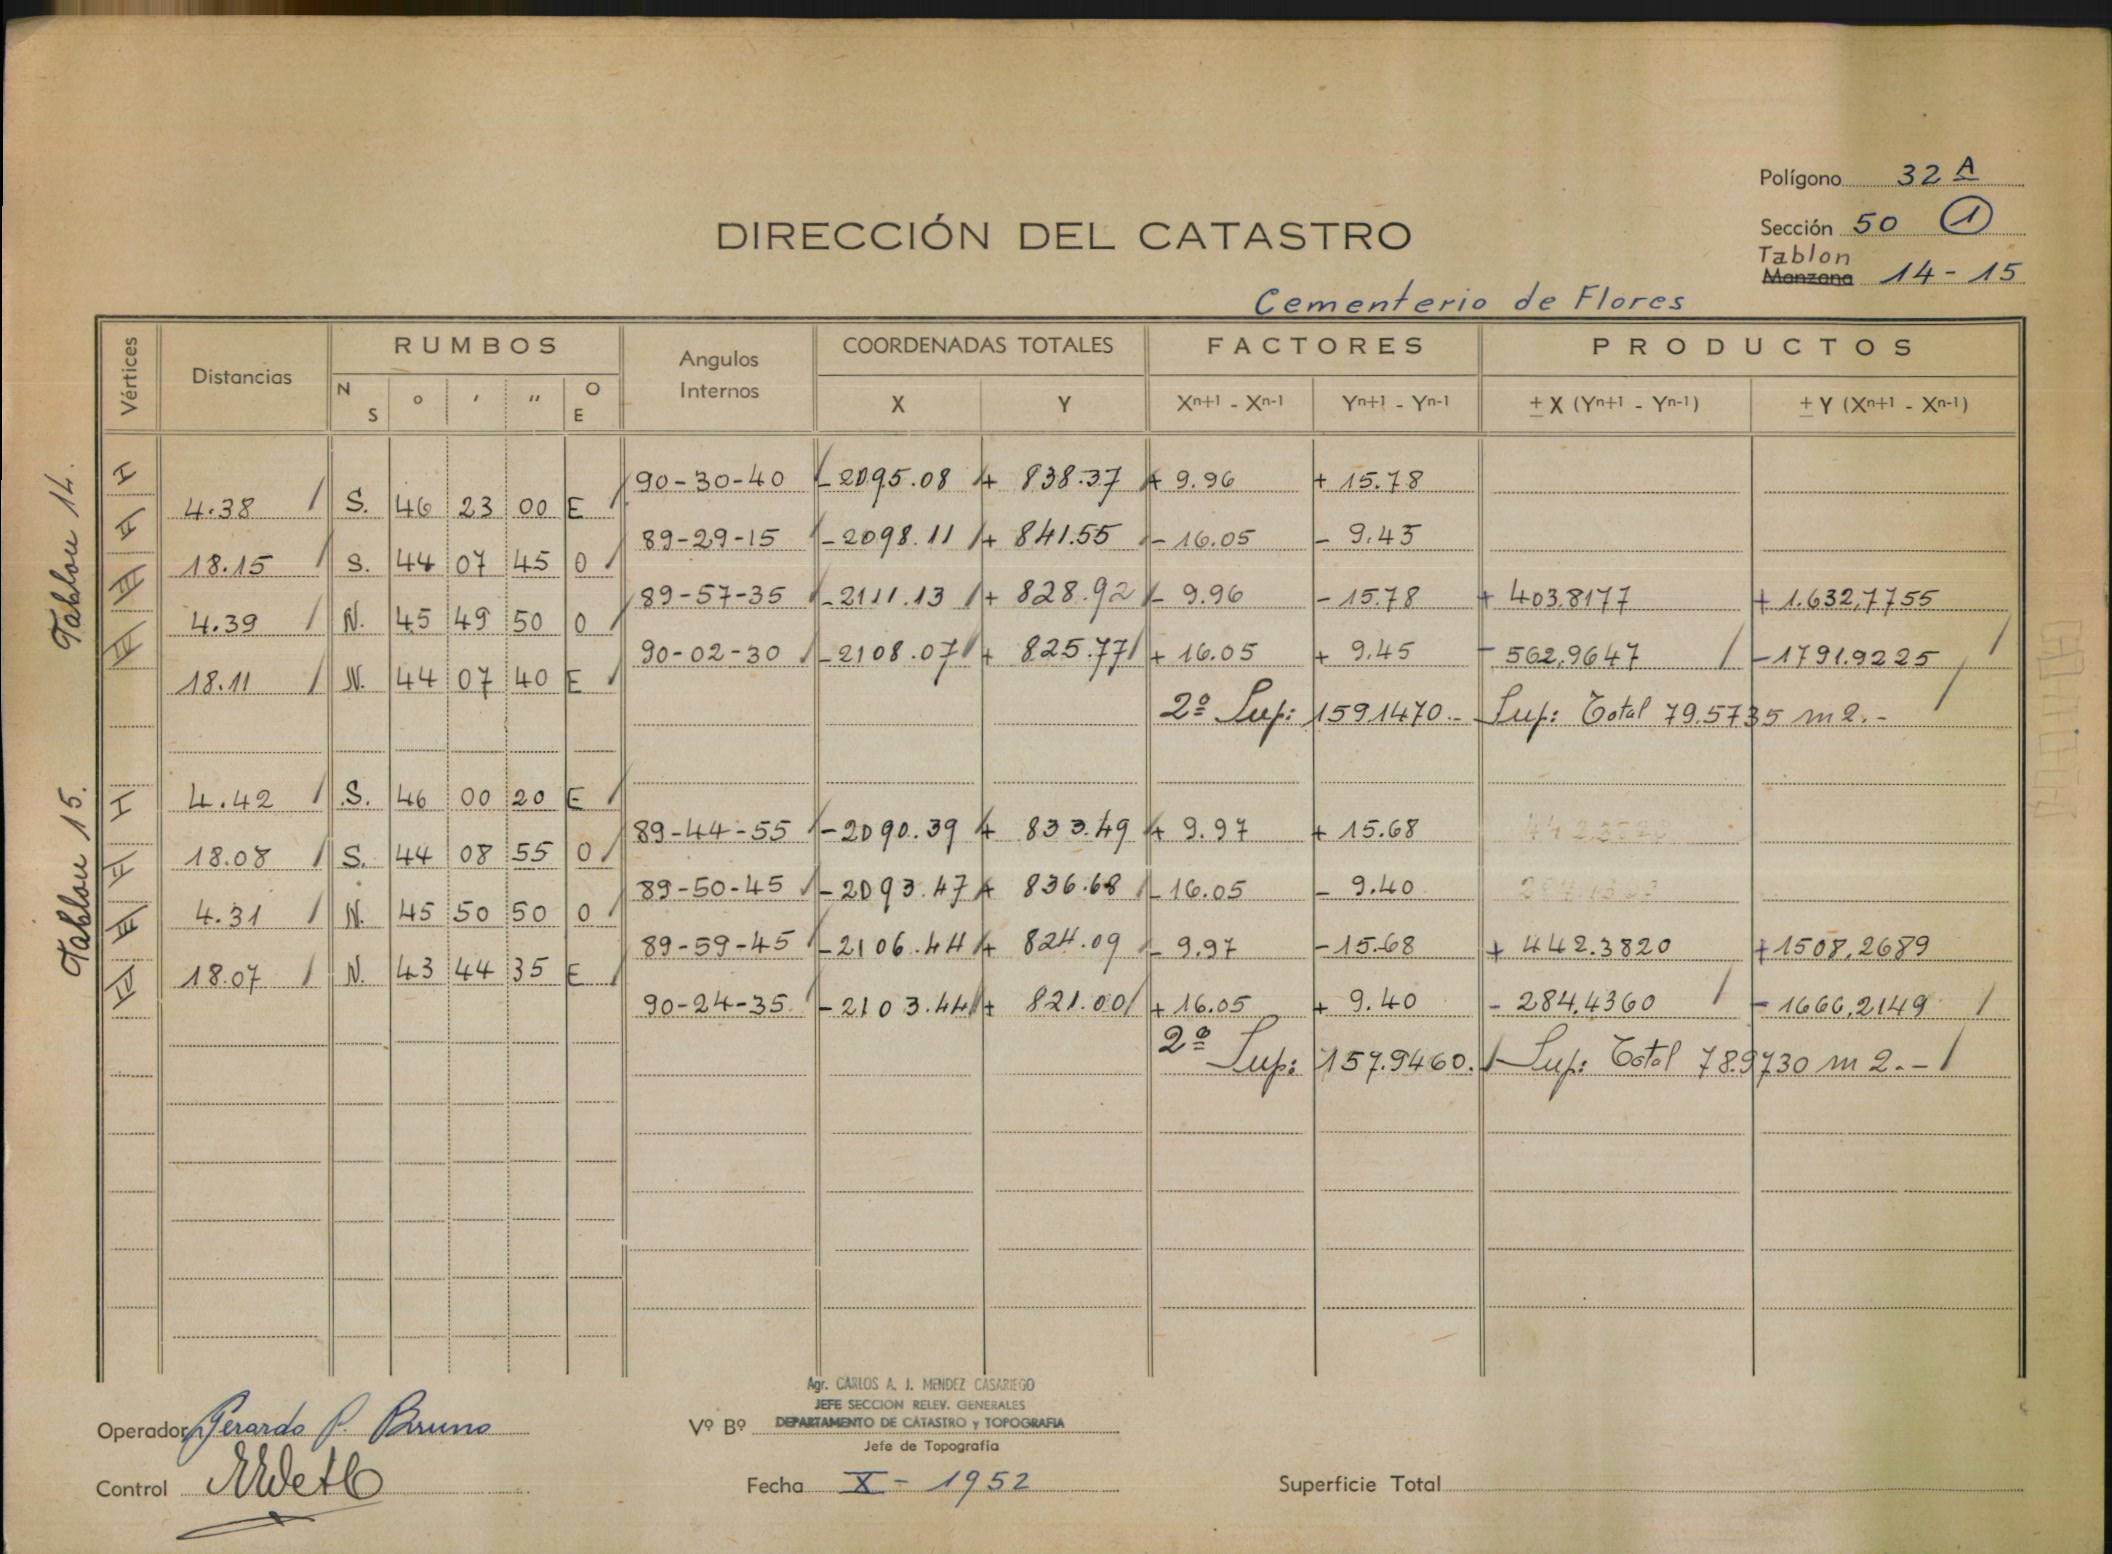 Polígono 32 A
Sección 50 1
Tablon
Manzana 14-15
DIRECCIÓN DEL CATASTRO
Cementerio de Flores
Vértices Distancias RUMBOS Angulos Internos COORDENADAS TOTALES FACTORES PRODUCTOS
N S ° ' " O E X Y Xn+1 - Xn-1 Yn+1 - Yn-1 ± X (Yn+1 - Yn-1) ± Y (Xn+1 - Xn-1)
Tablon 14.
I 90-30-40 -2095.08 + 838.37 + 9.96 + 15.78
4.38 S. 46 23 00 E
II 89-29-15 -2098.11 + 841.55 - 16.05 - 9.45
18.15 S. 44 07 45 O
III 89-57-35 -2111.13 + 828.92 - 9.96 - 15.78 + 403.8177 + 1.632,7755
4.39 N. 45 49 50 O
IV 90-02-30 -2108.07 + 825.77 + 16.05 + 9.45 - 562,9647 - 1791.9225
18.11 N. 44 07 40 E
2º Sup: 159.1470.- Sup: Total 79.5735 m2.-
Tablon 15.
4.42 S. 46 00 20 E
I 89-44-55 -2090.39 + 833.49 + 9.97 + 15.68
18.08 S. 44 08 55 O
II 89-50-45 -2093.47 + 836.68 - 16.05 - 9.40
4.31 N. 45 50 50 O
III 89-59-45 -2106.44 + 824.09 - 9.97 - 15.68 + 442.3820 + 1508,2689
18.07 N. 43 44 35 E
IV 90-24-35 -2103.44 + 821.00 + 16.05 + 9.40 - 284,4360 - 1666,2149
2º Sup: 157.9460. Sup: Total 78.9730 m2.-
Agr. CARLOS A. J. MENDEZ CASARIEGO
JEFE SECCION RELEV. GENERALES
DEPARTAMENTO DE CATASTRO y TOPOGRAFIA
Operador Gerardo P. Bruno Vº Bº
Jefe de Topografía
Control Fecha X - 1952 Superficie Total